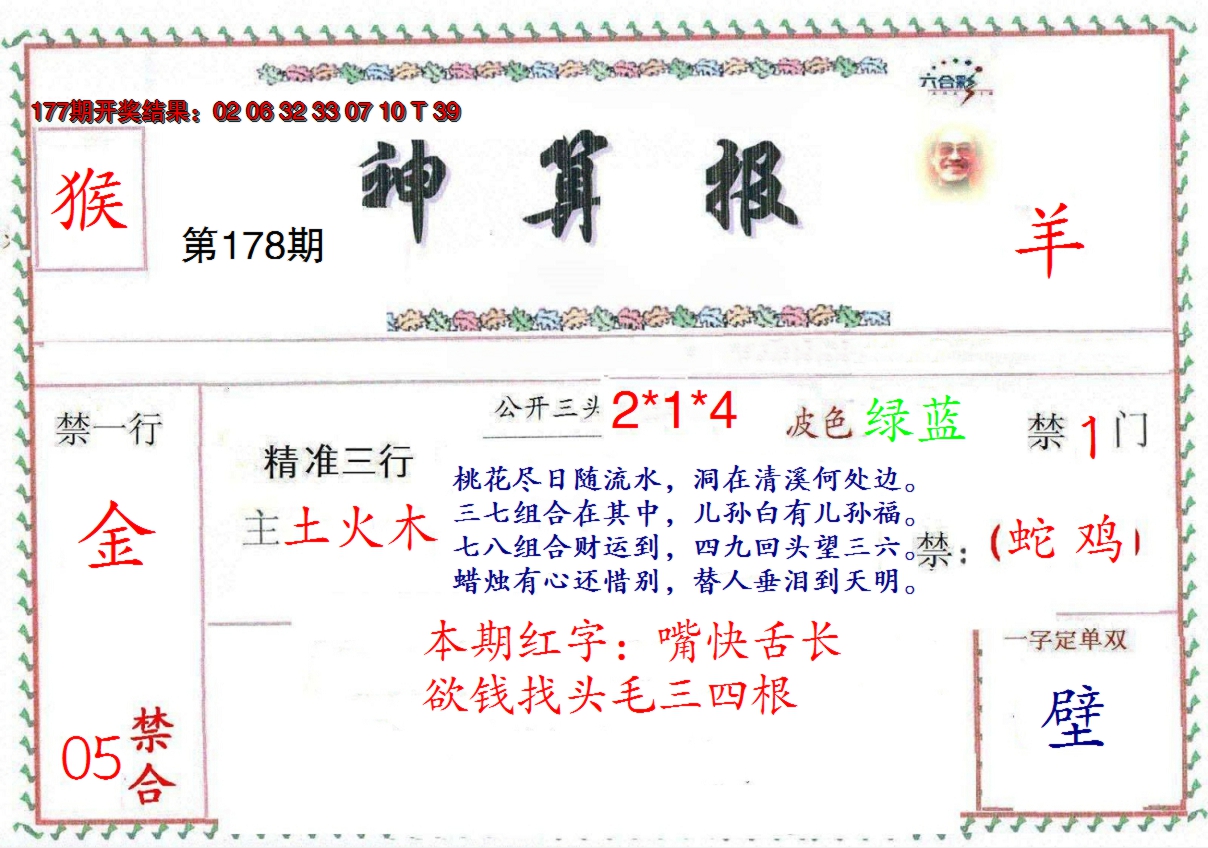 六合彩
177期开奖结果：02 06 32 33 07 10 T 39
猴
神算报
第178期
羊
禁一行
公开三头 2*1*4
波色 绿蓝
禁1门
精准三行
主土火木
金
桃花尽日随流水，洞在清溪何处边。
三七组合在其中，儿孙自有儿孙福。
七八组合财运到，四九回头望三六。
蜡烛有心还惜别，替人垂泪到天明。
禁：（蛇 鸡）
本期红字：嘴快舌长
欲钱找头毛三四根
一字定单双
壁
05禁合